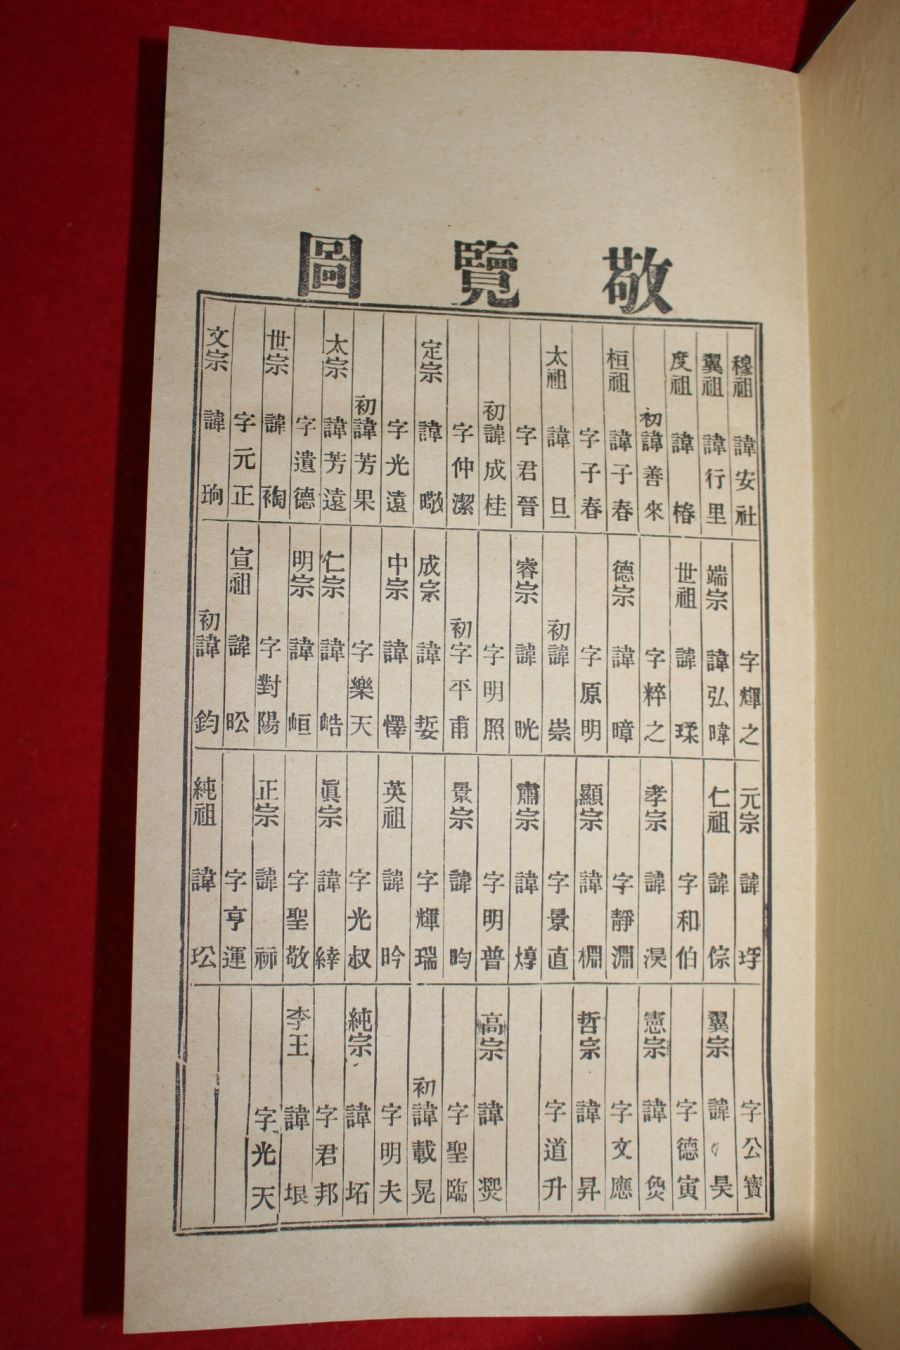 敬覽圖
穆祖 諱安社
翼祖 諱行里
度祖 諱椿
初諱善來
桓祖 諱子春
字子春
太祖 諱旦
字君晉
初諱成桂
字仲潔
定宗 諱曔
字光遠
初諱芳果
太宗 諱芳遠
字遺德
世宗 諱裪
字元正
文宗 諱珦
字輝之
端宗 諱弘暐
世祖 諱瑈
字粹之
德宗 諱暲
字原明
初諱崇
睿宗 諱晄
字明照
初字平甫
成宗 諱娎
中宗 諱懌
字樂天
仁宗 諱皓
明宗 諱峘
字對陽
宣祖 諱昖
初諱鈞
元宗 諱琈
仁祖 諱倧
字和伯
孝宗 諱淏
字靜淵
顯宗 諱棩
字景直
肅宗 諱焞
字明普
景宗 諱昀
字輝瑞
英祖 諱昑
字光叔
眞宗 諱緈
字聖敬
正宗 諱祘
字亨運
純祖 諱玜
字公寶
翼宗 諱昊
字德寅
憲宗 諱烉
字文應
哲宗 諱昇
字道升
高宗 諱㷩
字聖臨
初諱載晃
字明夫
純宗 諱坧
字君邦
李王 諱垠
字光天